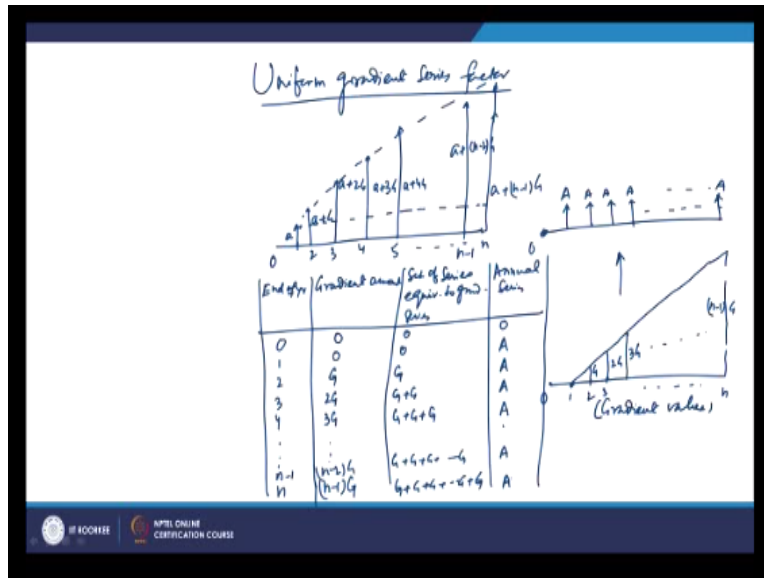 Uniform gradient Series factor
a a+G a+2G a+3G a+4G a+(n-2)G a+(n-1)G
0 2 3 4 5 - - - - n-1 n
A A A A - - - - A
0
End of yr Gradient Set of Series equiv. to grad. Series Annual Series
0 0 0 0
1 0 0 A
2 G G A
3 2G G+G A
4 3G G+G+G A
n-1 (n-2)G G+G+G+ - -G A
n (n-1)G G+G+G+ - -G+G A
G 2G 3G - - - - (n-1)G
0 1 2 3 - - - - - n
(Gradient values)
IIT ROORKEE
NPTEL ONLINE
CERTIFICATION COURSE